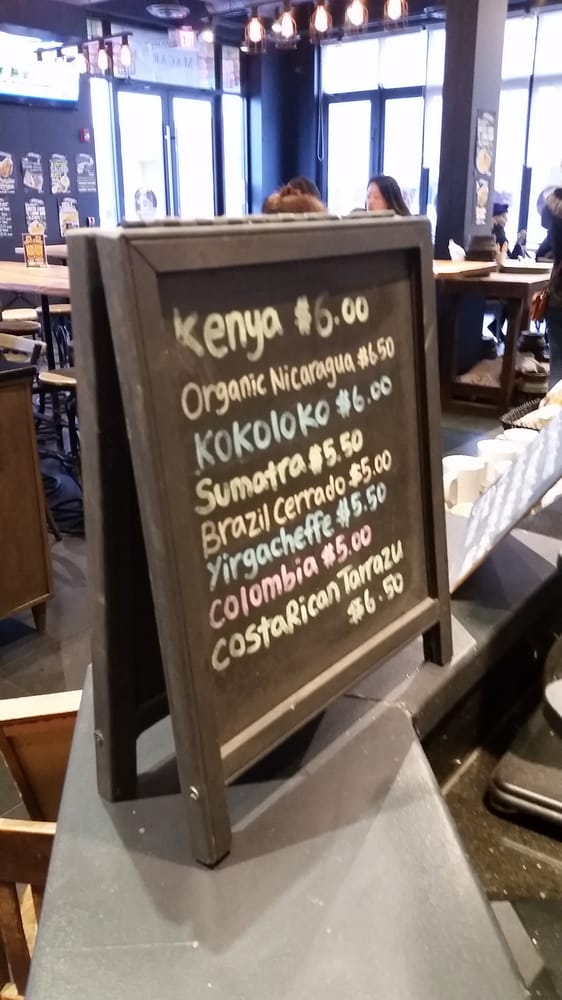 Kenya $6.00
Organic Nicaragua $6.50
KOKOLOKO $6.00
Sumatra $5.50
Brazil Cerrado $5.00
Yirgacheffe $5.50
Colombia $5.00
CostaRican Tarrazu
$6.50